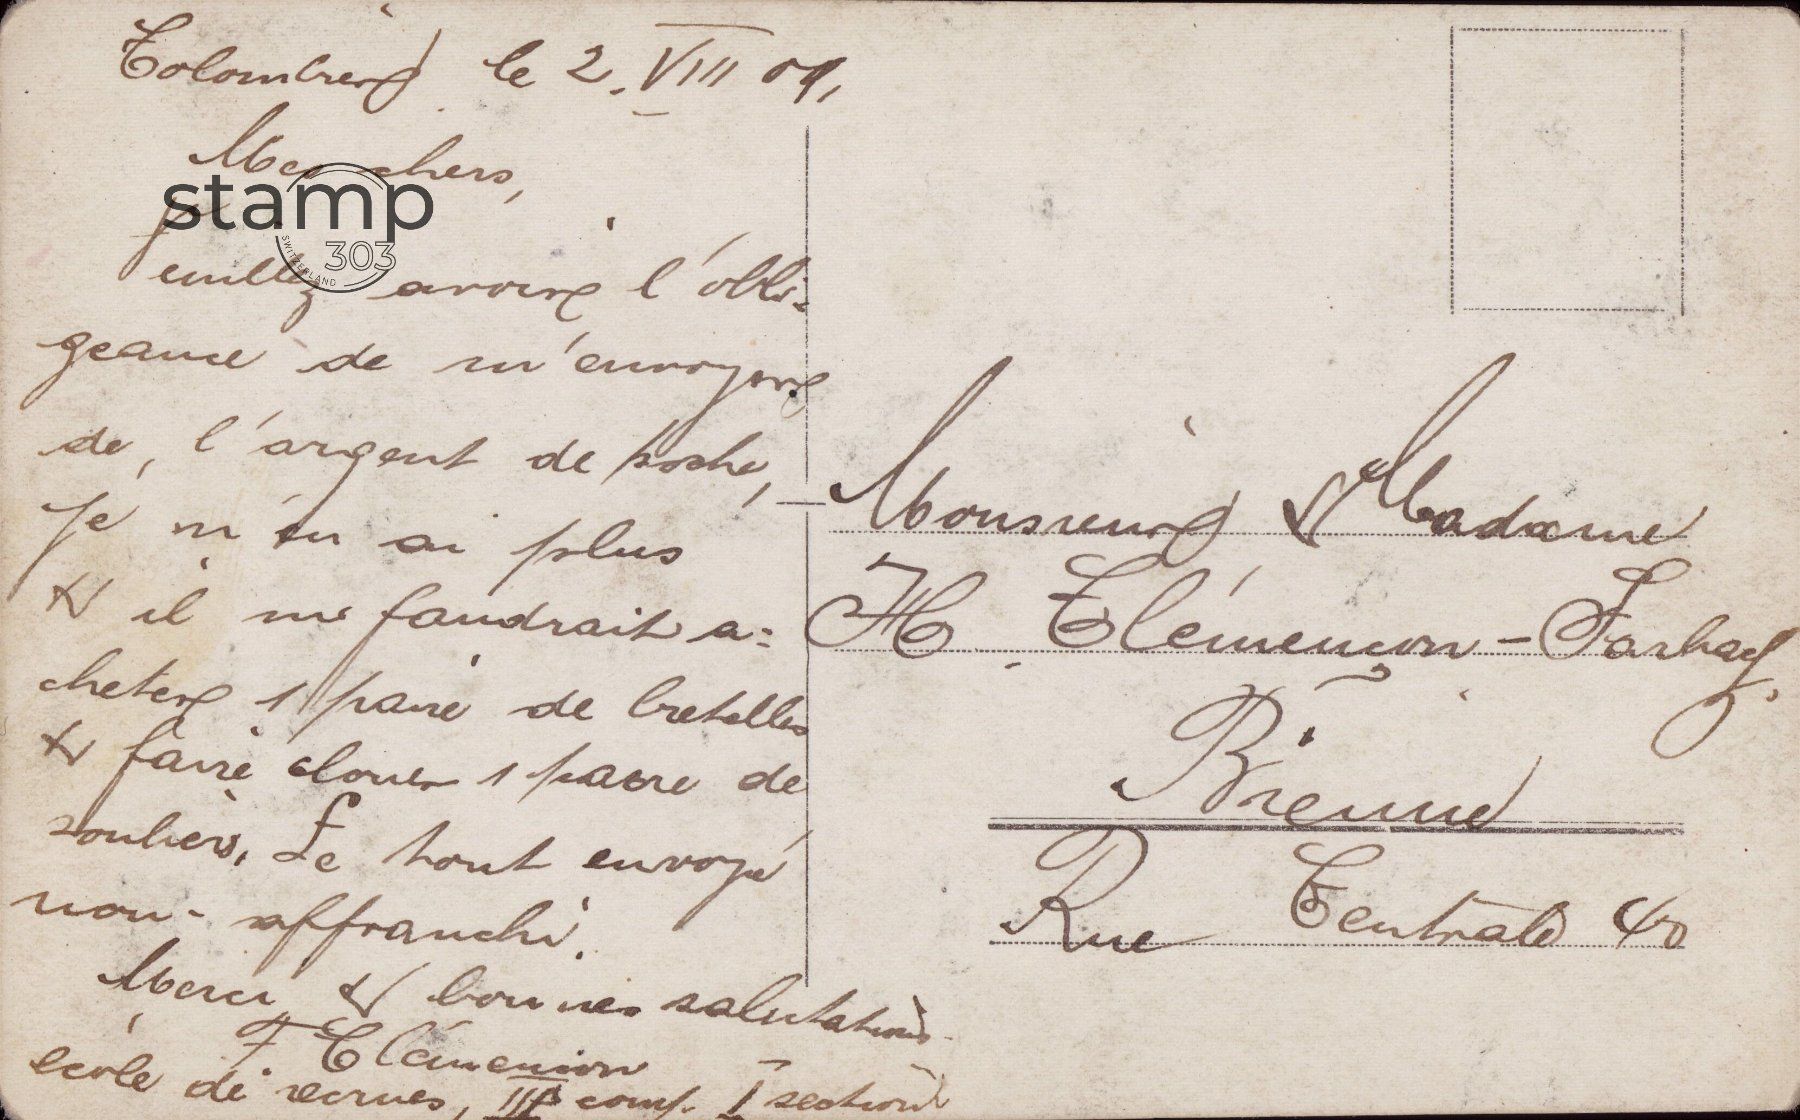 Colombier le 2. VIII 09,
Mes chers,
stamp
303
SWITZERLAND
euillez avoir l'obli-
geance de m'envoyer
de, l'argent de poche,
je n'en ai plus
& il me faudrait a-
cheter 1 paire de bretelles
& faire clouer 1 paire de
souliers. Le tout envoyé
non-affranchi.
Merci & bonnes salutations
F Clémençon
école de recrues, III comp. I section
Monsieur & Madame
H. Clémençon -
Bienne
Rue Centrale 40